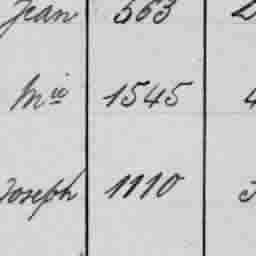 Jean 563
Mie 1545
Joseph 1110